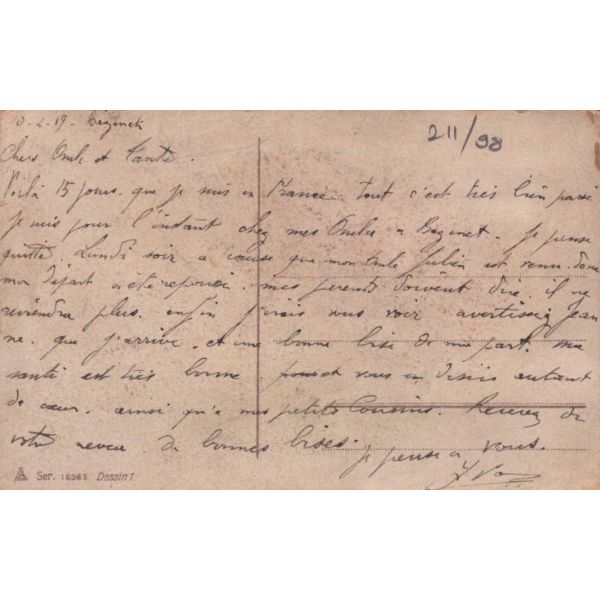 4-19. Bézenet
211/98
Chers Oncle et Tante.
Voilà 15 jours que je suis en France. tout c'est très bien passé
je suis pour l'instant chez mes Oncles a Bezenet. Je pense
quitté. Lundi soir a cause que mon Oncle est venu. donc
mon départ a été repoussé. mes parents doivent dire il ne
reviendra plus. enfin j'irais vous voir avertissez Jean
ne. que j'arrive. et une bonne bise de ma part. ma
santé est très bonne. et vous en désire autant
de cœur. ainsi qu'a mes petits Cousins. Recevez de
votre neveu de bonnes bises.
je pense a vous.
Ser. 16365 Dessin 1